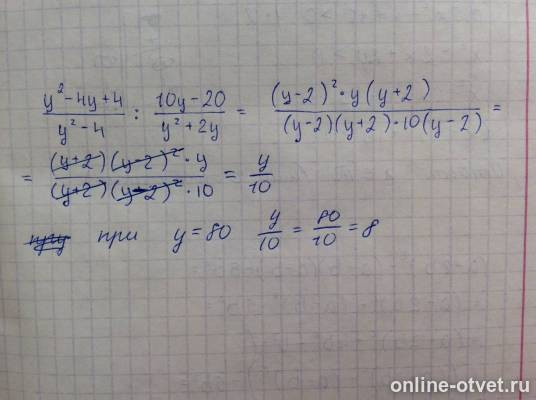 (y²-4y+4)/(y²-4) : (10y-20)/(y²+2y) = ((y-2)²·y(y+2))/((y-2)(y+2)·10(y-2)) =
= ((y+2)(y-2)²·y)/((y+2)(y-2)²·10) = y/10
при y=80 y/10 = 80/10 = 8
online-otvet.ru